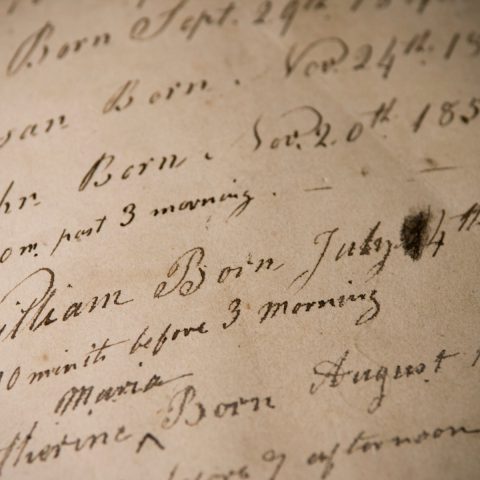 Born Sept. 29th
Born. Nov. 24th. 18
hn. Born. Nov. 20th 185
0 m. past 3 morning.
illiam Born July 4th
10 minits before 3 morning
Maria
therine ^ Born August
before 7 afternoon